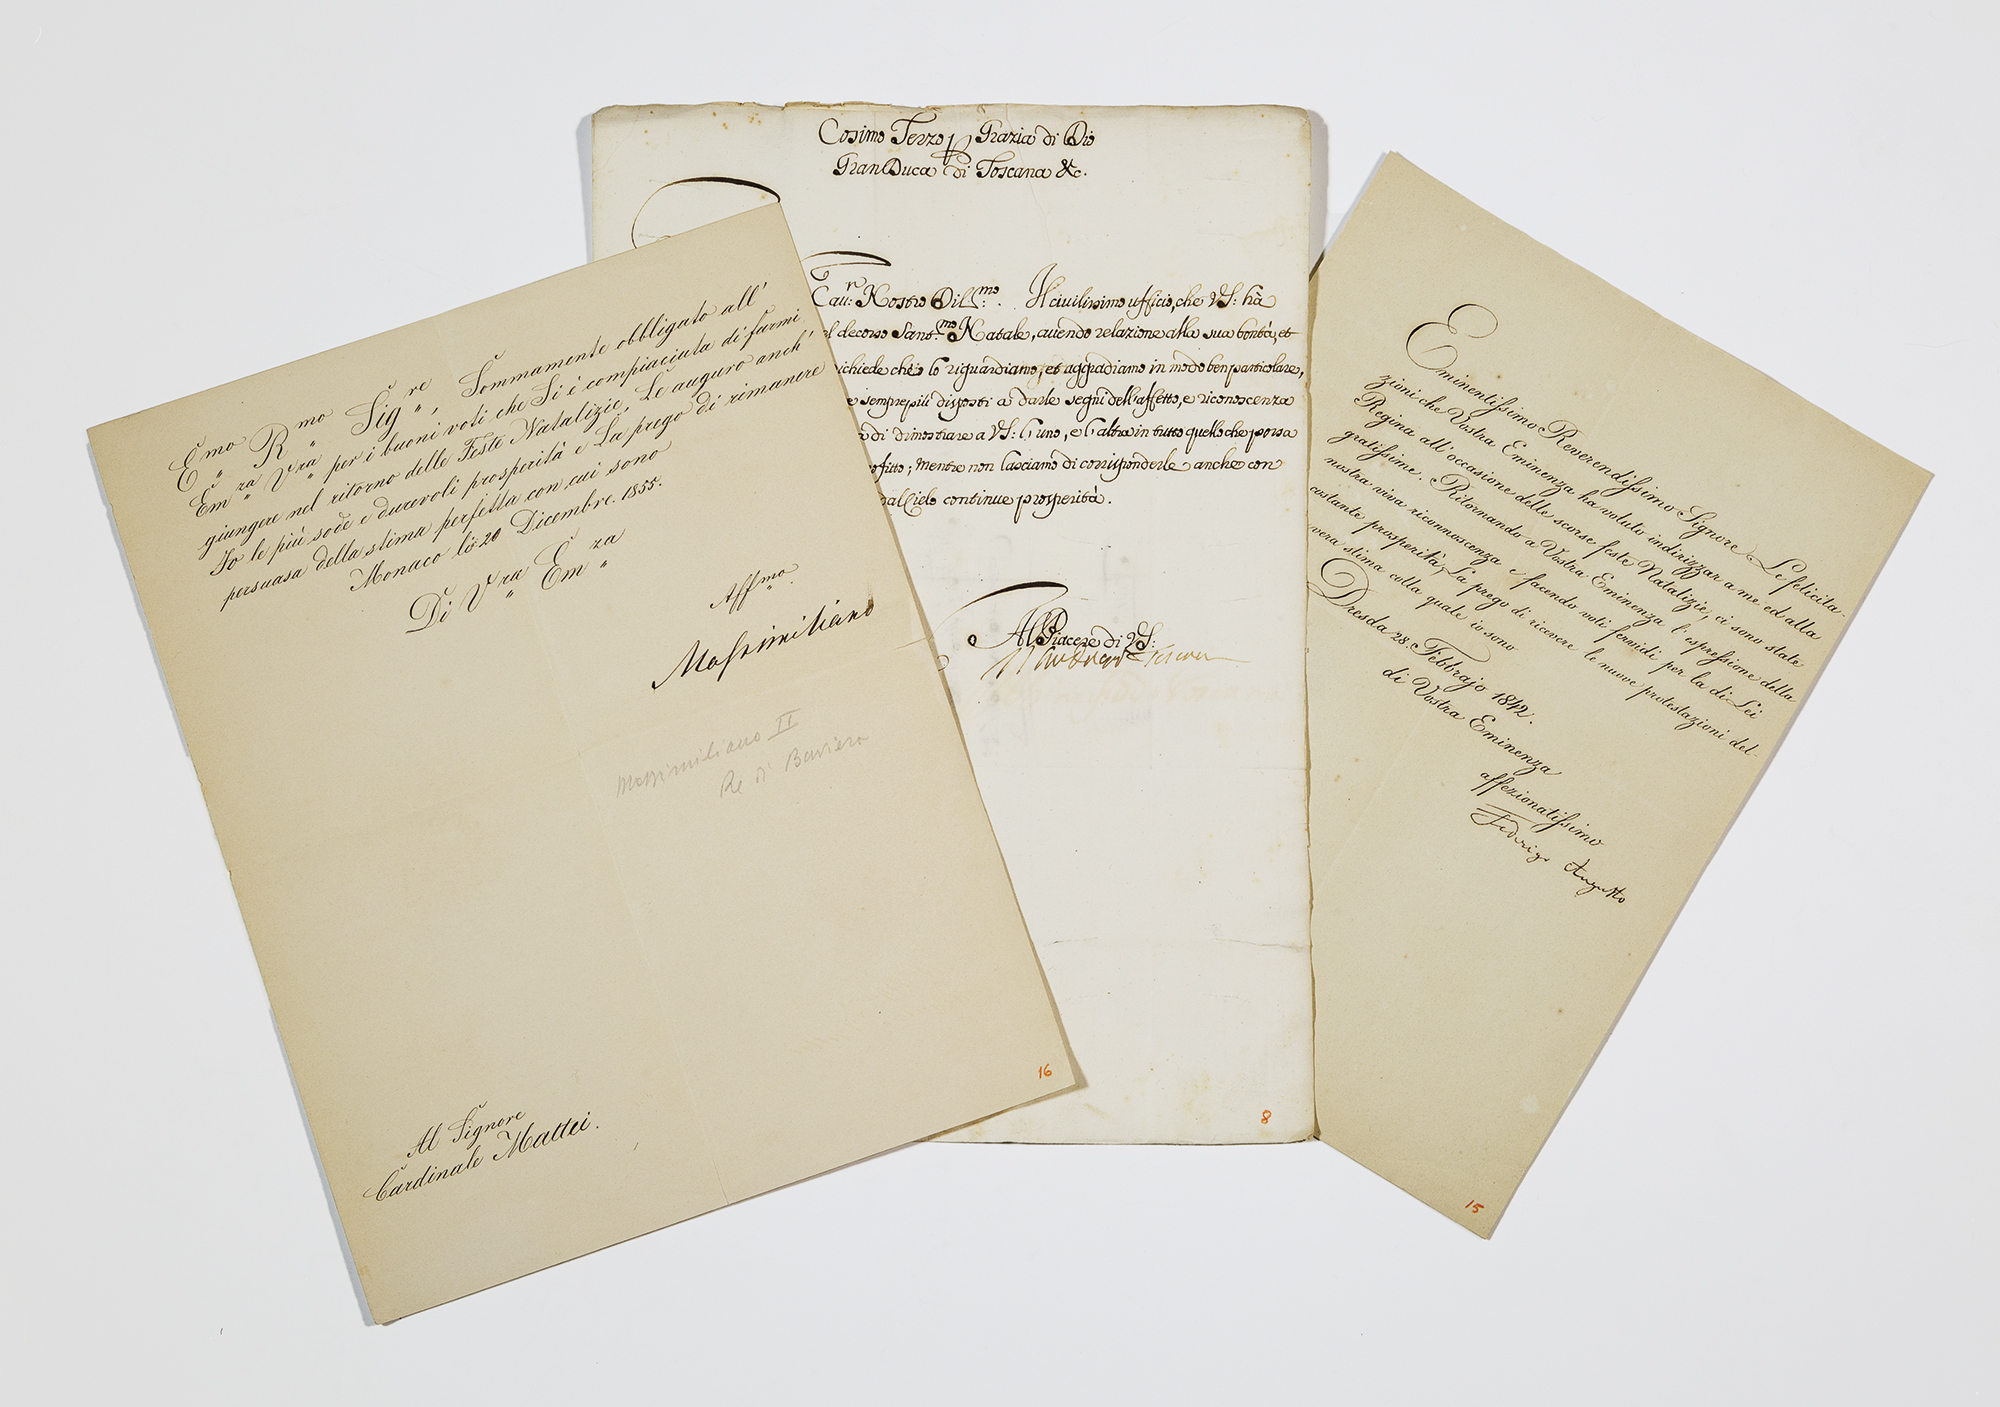 Cosimo Terzo p Grazia di Dio
Gran Duca di Toscana &c.
Cau:r Nostro Dil:mo. Il ciuilissimo ufficio, che VS: hà
el decorso Sant:mo Natale, auendo relazione alla sua bontà, et
ichiede che lo riguardiamo, et aggradiamo in modo ben particolare,
e sempre più disposti a darle segni dell'affetto, e riconoscenza
a di dimostrare a VS: l'uno, e l'altra in tutto quello che possa
ofitto; Mentre non lasciamo di corrisponderle anche con
dal Cielo continue prosperità.
Al Piacere di VS:
8
Emo Rmo Sigre, Sommamente obbligato all'
Emza Vra per i buoni voti che Si è compiaciuta di farmi
giungere nel ritorno delle Feste Natalizie, Le auguro anch'
Io le più sode e durevoli prosperità e La prego di rimanere
persuasa della stima perfetta con cui sono
Monaco li 20 Dicembre. 1855.
Di Vra Emza
Affmo
Massimiliano
Massimiliano II
Re di Baviera
Al Signore
Cardinale Mattei.
16
Eminentissimo Reverendissimo Signore Le felicita-
zioni che Vostra Eminenza ha voluto indirizzar a me ed alla
Regina all'occasione delle scorse feste Natalizie, ci sono state
gratissime. Ritornando a Vostra Eminenza l'espressione della
nostra viva riconnoscenza e facendo voti fervidi per la di Lei
costante prosperità, La prego di ricevere le nuove protestazioni del-
vera stima colla quale io sono
Dresda 28. Febbrajo 1842.
di Vostra Eminenza
affezionatissimo
Federigo Augusto
15